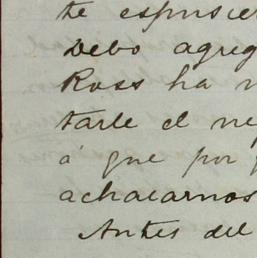 te espusier
Debo agreg
Ross ha n
tarle el ne
á que por g
achacarnos
Antes del